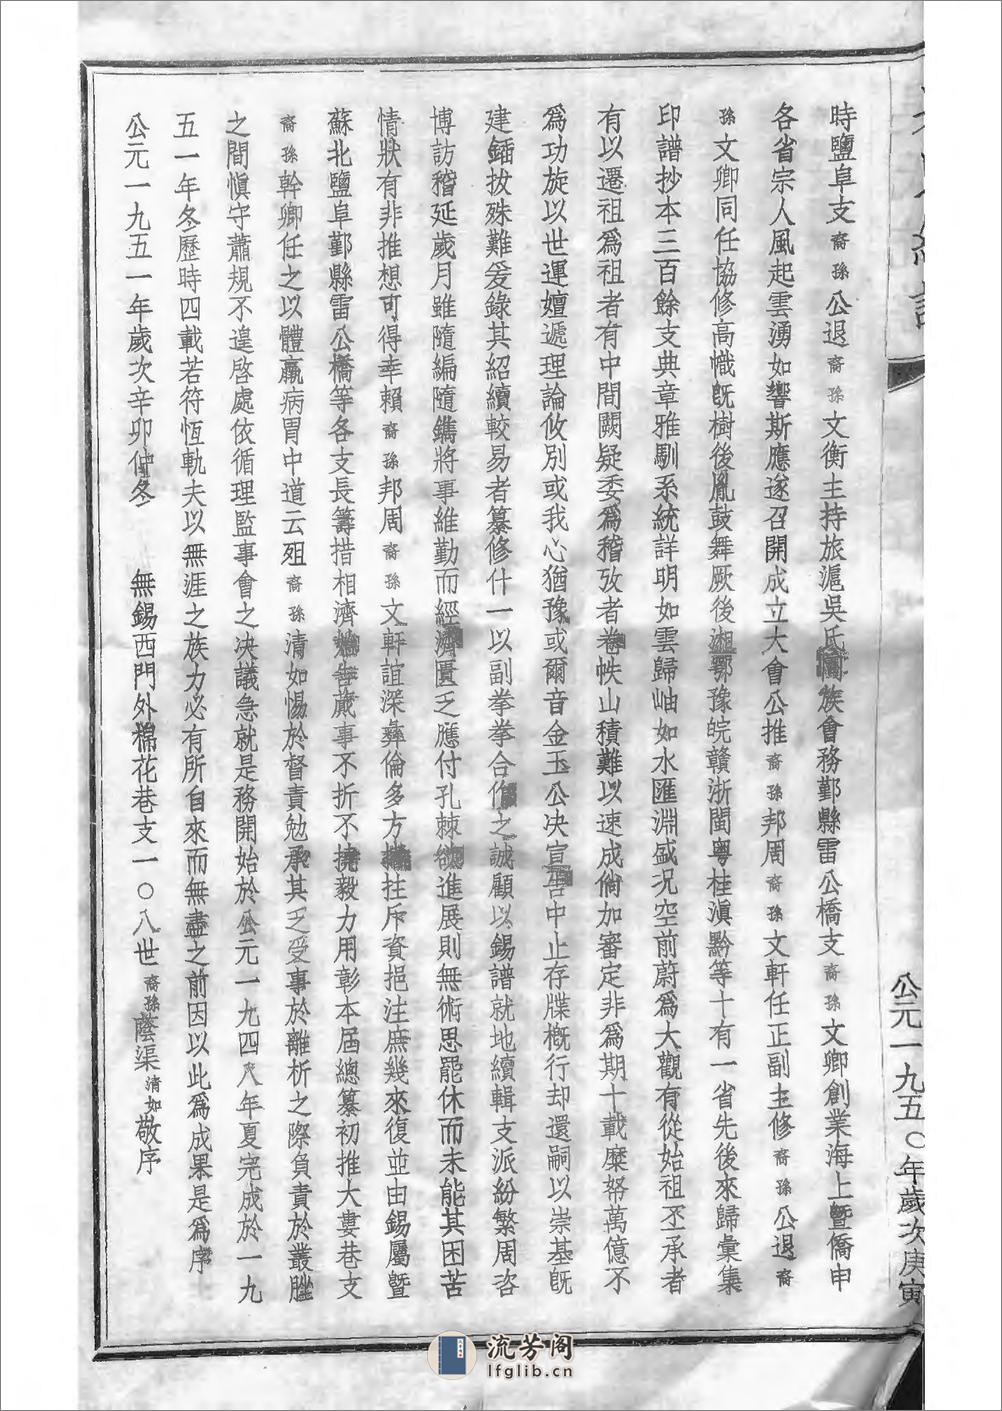 公元一九五〇年歲次庚寅
時鹽阜支裔孫公退裔孫文衡主持旅滬吳氏族會務鄞縣雷公橋支裔孫文卿創業海上曁僑申
各省宗人風起雲湧如響斯應遂召開成立大會公推裔孫邦周裔孫文軒任正副主修裔孫公退裔
孫文卿同任協修高幟旣樹後胤鼓舞厥後湘鄂豫皖贛浙閩粵桂滇黔等十有一省先後來歸彙集
印譜抄本三百餘支典章雅馴系統詳明如雲歸岫如水匯淵盛况空前蔚爲大觀有從始祖丕承者
有以遷祖爲祖者有中間闕疑委爲稽攷者卷帙山積難以速成倘加審定非爲期十載糜帑萬億不
爲功旋以世運嬗遞理論攸別或我心猶豫或爾音金玉公决宣吿中止存牒槪行却還嗣以崇基旣
建鍤拔殊難爰錄其紹續較易者纂修什一以副拳拳合作之誠顧以錫譜就地續輯支派紛繁周咨
博訪稽延歲月雖隨編隨鐫將事維勤而經濟匱乏應付孔棘欲進展則無術思罷休而未能其困苦
情狀有非推想可得幸賴裔孫邦周裔孫文軒誼深彝倫多方拄斥資挹注庶幾來復並由錫屬曁
蘇北鹽阜鄞縣雷公橋等各支長籌措相濟吿蕆事不折不撓毅力用彰本屆總纂初推大婁巷支
裔孫幹卿任之以體羸病胃中道云殂裔孫清如惕於督責勉承其乏受事於離析之際負責於叢脞
之間愼守蕭規不遑啓處依循理監事會之决議急就是務開始於公元一九四八年夏完成於一九
五一年冬歷時四載若符恆軌夫以無涯之族力必有所自來而無盡之前因以此爲成果是爲序
公元一九五一年歲次辛卯仲冬 無錫西門外棉花巷支一〇八世裔孫蔭渠清如敬序
流芳阁
lfglib.cn